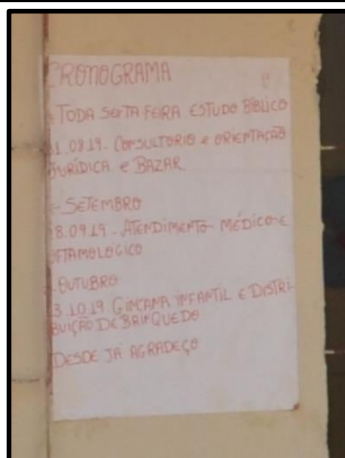 CRONOGRAMA
TODA SEXTA FEIRA ESTUDO BÍBLICO
1.08.19. CONSULTORIO e ORIENTAÇÃO
JURÍDICA e BAZAR
- SETEMBRO
8.09.19 - ATENDIMENTO MÉDICO E
OFTAMOLOGICO
- OUTUBRO
3.10.19. GINCANA INFANTIL E DISTRI-
BUIÇÃO DE BRINQUEDO
DESDE JÁ AGRADEÇO